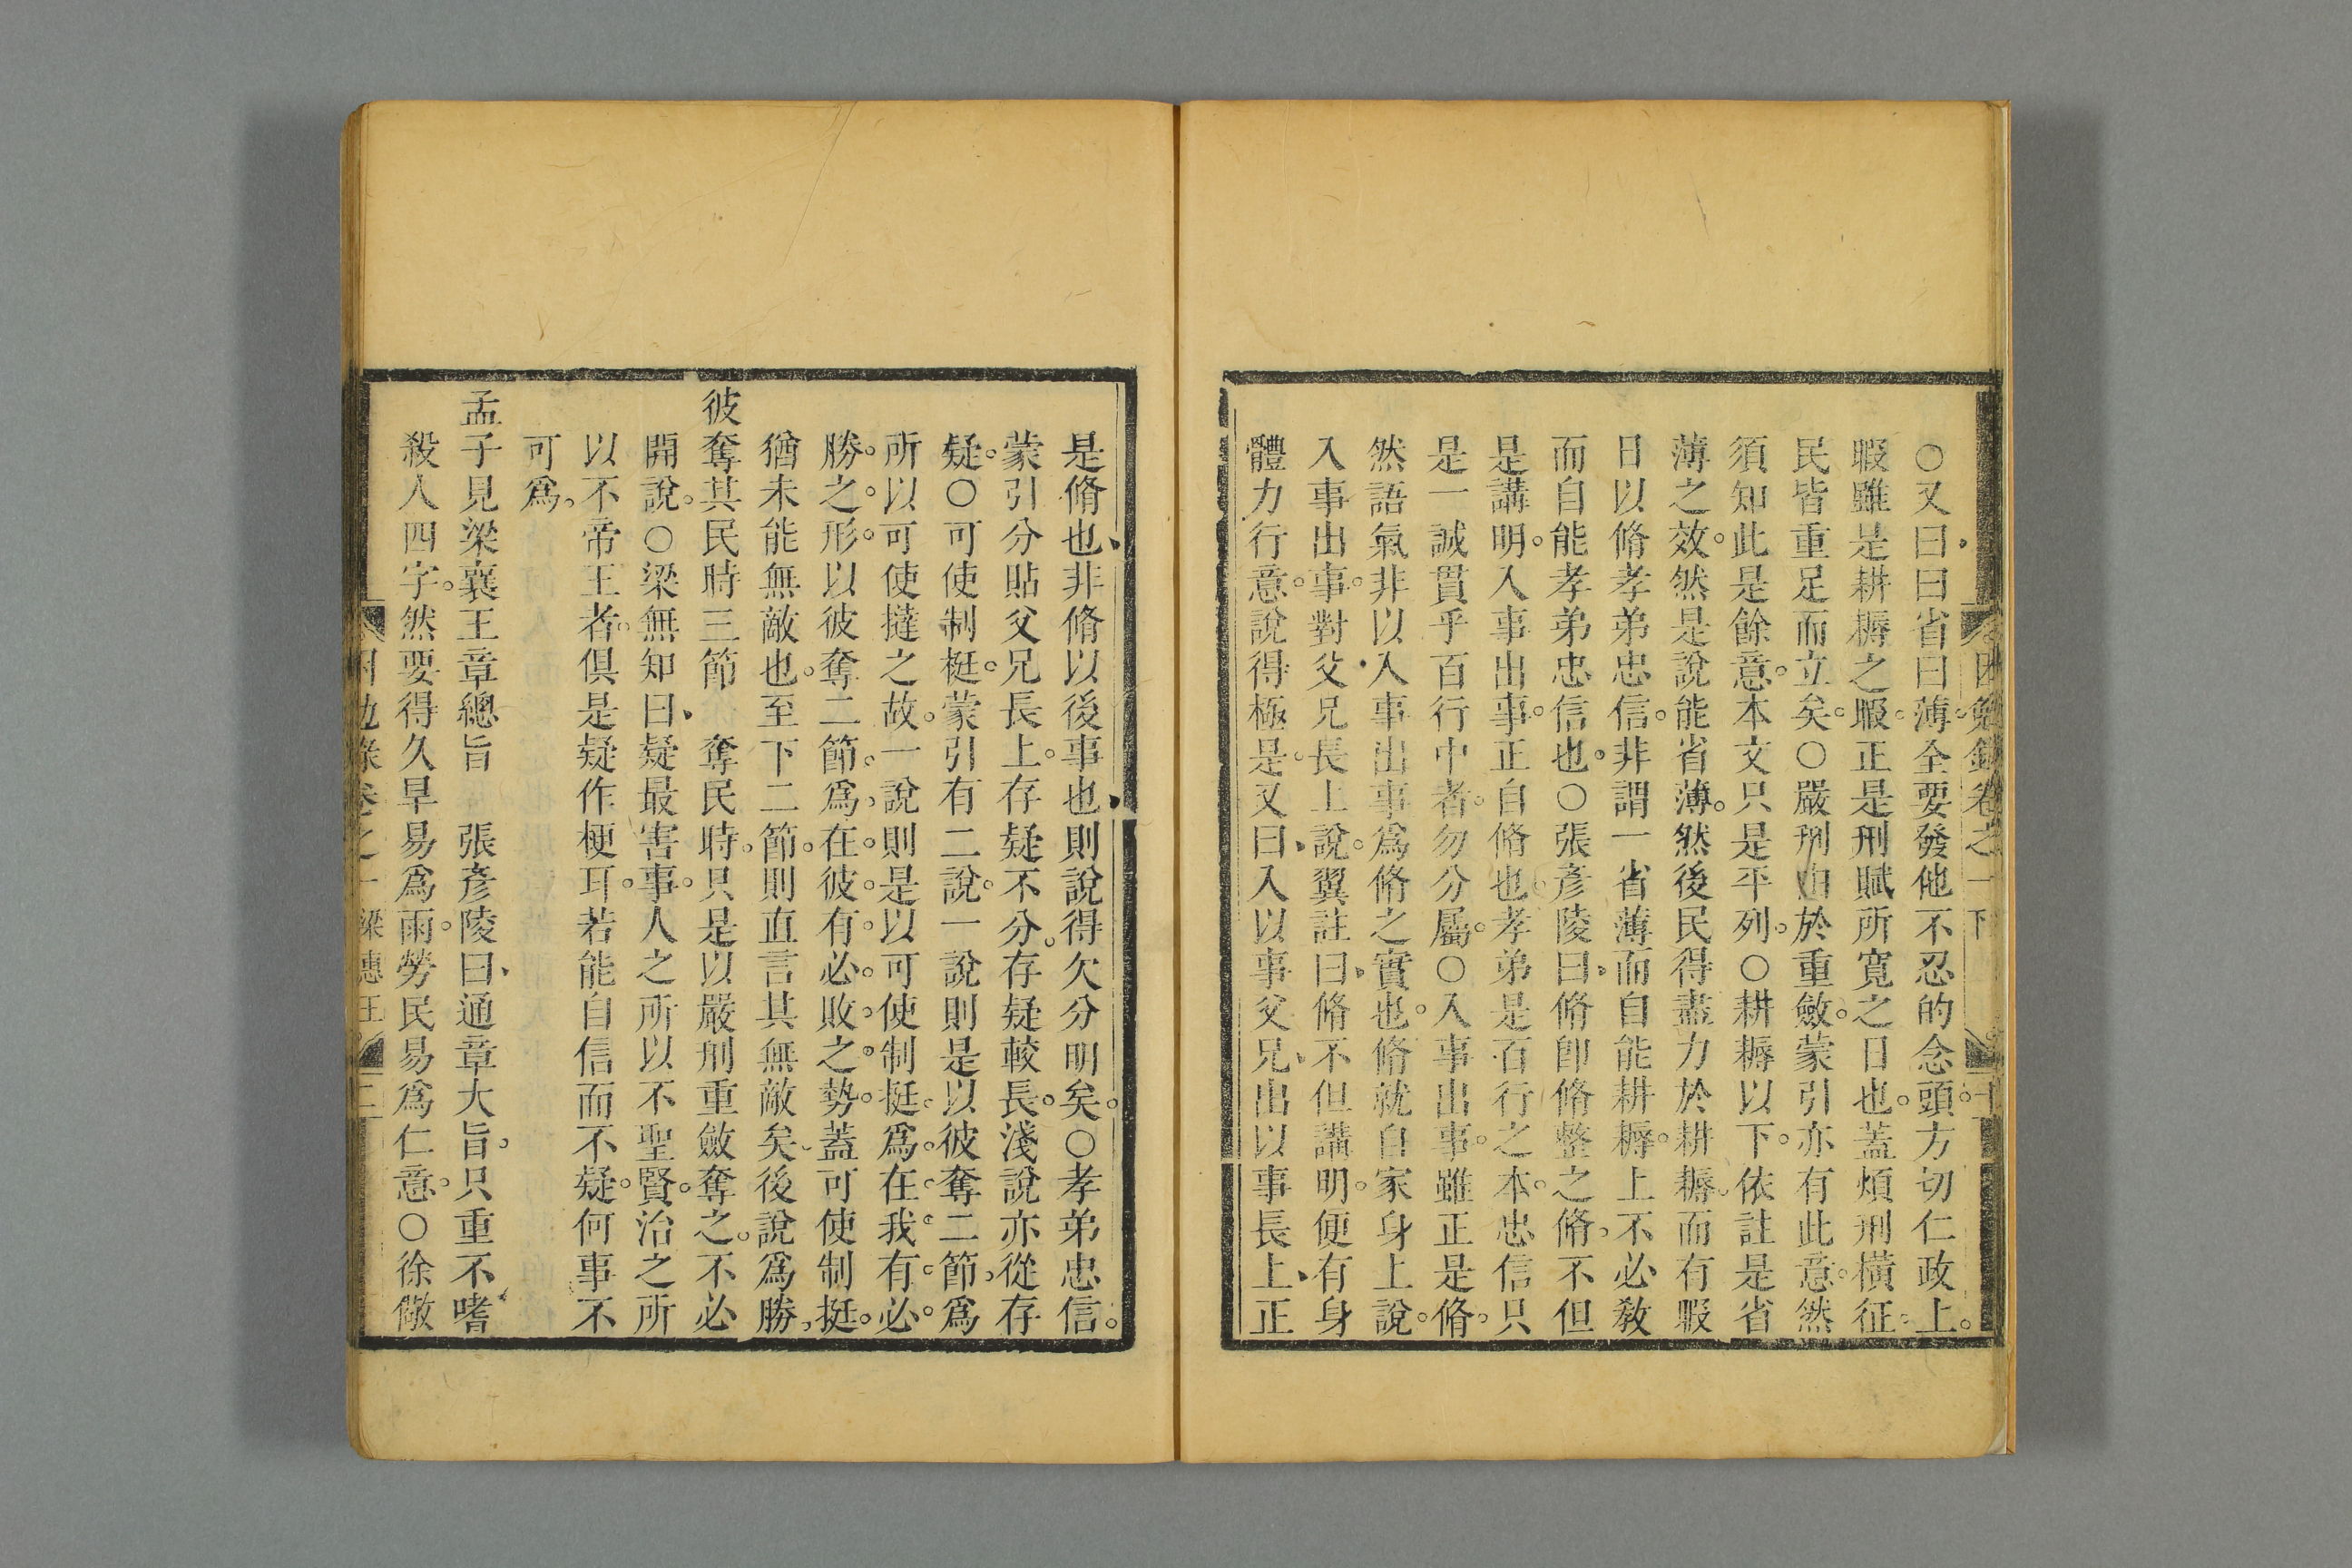 ○又曰曰省曰薄全要發他不忍的念頭方切仁政上
暇雖是耕耨之暇正是刑賦所寬之日也蓋煩刑橫征
民皆重足而立矣○嚴刑由於重斂蒙引亦有此意然
須知此是餘意本文只是平列○耕耨以下依註是省
薄之效然是說能省薄然後民得盡力於耕耨而有暇
日以脩孝弟忠信非謂一省薄而自能耕耨上不必教
而自能孝弟忠信也○張彥陵曰脩卽脩整之脩不但
是講明入事出事正自脩也孝弟是百行之本忠信只
是一誠貫乎百行中者勿分屬○入事出事雖正是脩
然語氣非以入事出事爲脩之實也脩就自家身上說
入事出事對父兄長上說翼註曰脩不但講明便有身
體力行意說得極是又曰入以事父兄出以事長上正
是脩也非脩以後事也則說得欠分明矣○孝弟忠信
蒙引分貼父兄長上存疑不分存疑較長淺說亦從存
疑○可使制挺蒙引有二說一說則是以彼奪二節爲
所以可使撻之故一說則是以可使制挺爲在我有必
勝之形以彼奪二節爲在彼有必敗之勢蓋可使制挺
猶未能無敵也至下二節則直言其無敵矣後說爲勝
彼奪其民時三節 奪民時只是以嚴刑重斂奪之不必
開說○梁無知曰疑最害事人之所以不聖賢治之所
以不帝王者俱是疑作梗耳若能自信而不疑何事不
可爲
孟子見梁襄王章總旨 張彥陵曰通章大旨只重不嗜
殺人四字然要得久旱易爲雨勞民易爲仁意○徐儆
困勉錄卷之一 梁惠王